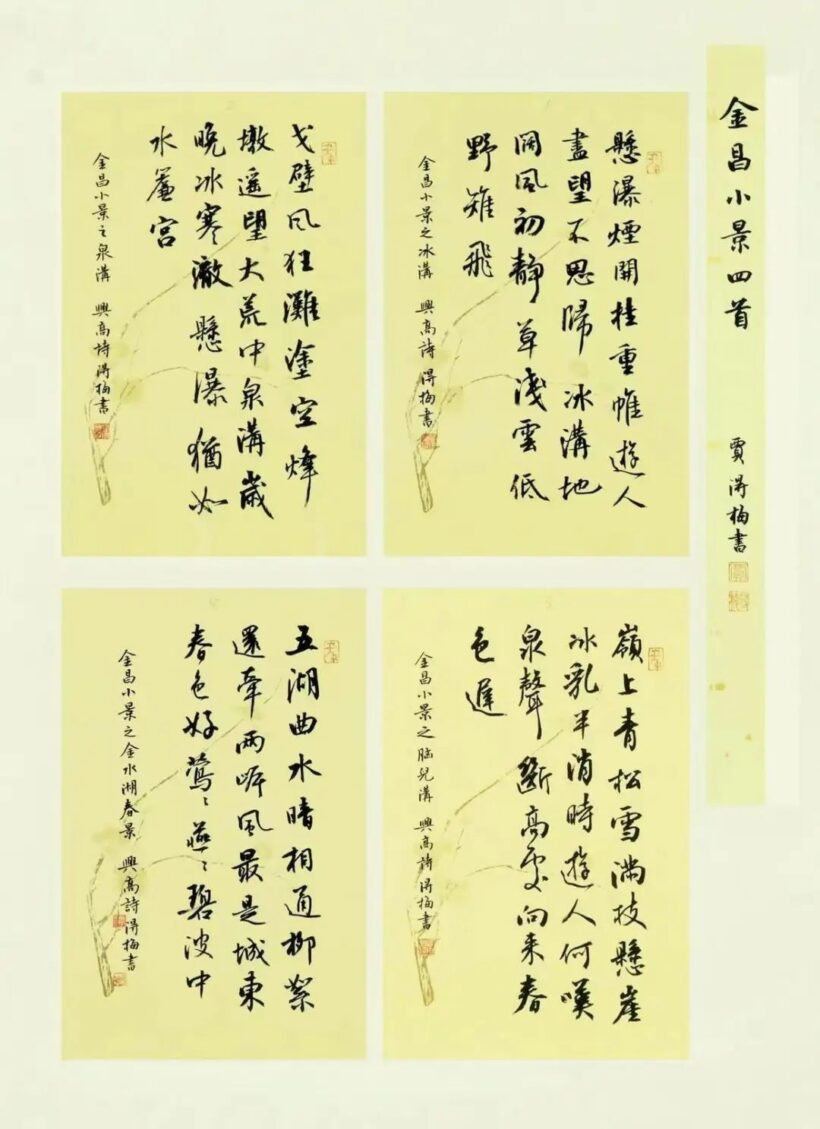 金昌小景四首
賈淂梅書
懸瀑煙開挂重帷遊人
盡望不思歸冰溝地
闊風初靜草淺雲低
野雉飛
金昌小景之冰溝 興高詩 淂梅書
戈壁风狂灘塗空烽
墩遥望大荒中泉溝歲
晚冰寒澈懸瀑猶如
水簾宮
金昌小景之泉溝 興高詩 淂梅書
嶺上青松雪滿枝懸崖
冰乳半消時遊人何嘆
泉聲斷高處向来春
色遲
金昌小景之脑兒溝 興高詩 淂梅書
五湖曲水暗相通柳絮
還牽兩岸風最是城東
春色好鶯〻燕〻碧波中
金昌小景之金水湖春景 興高詩 淂梅書